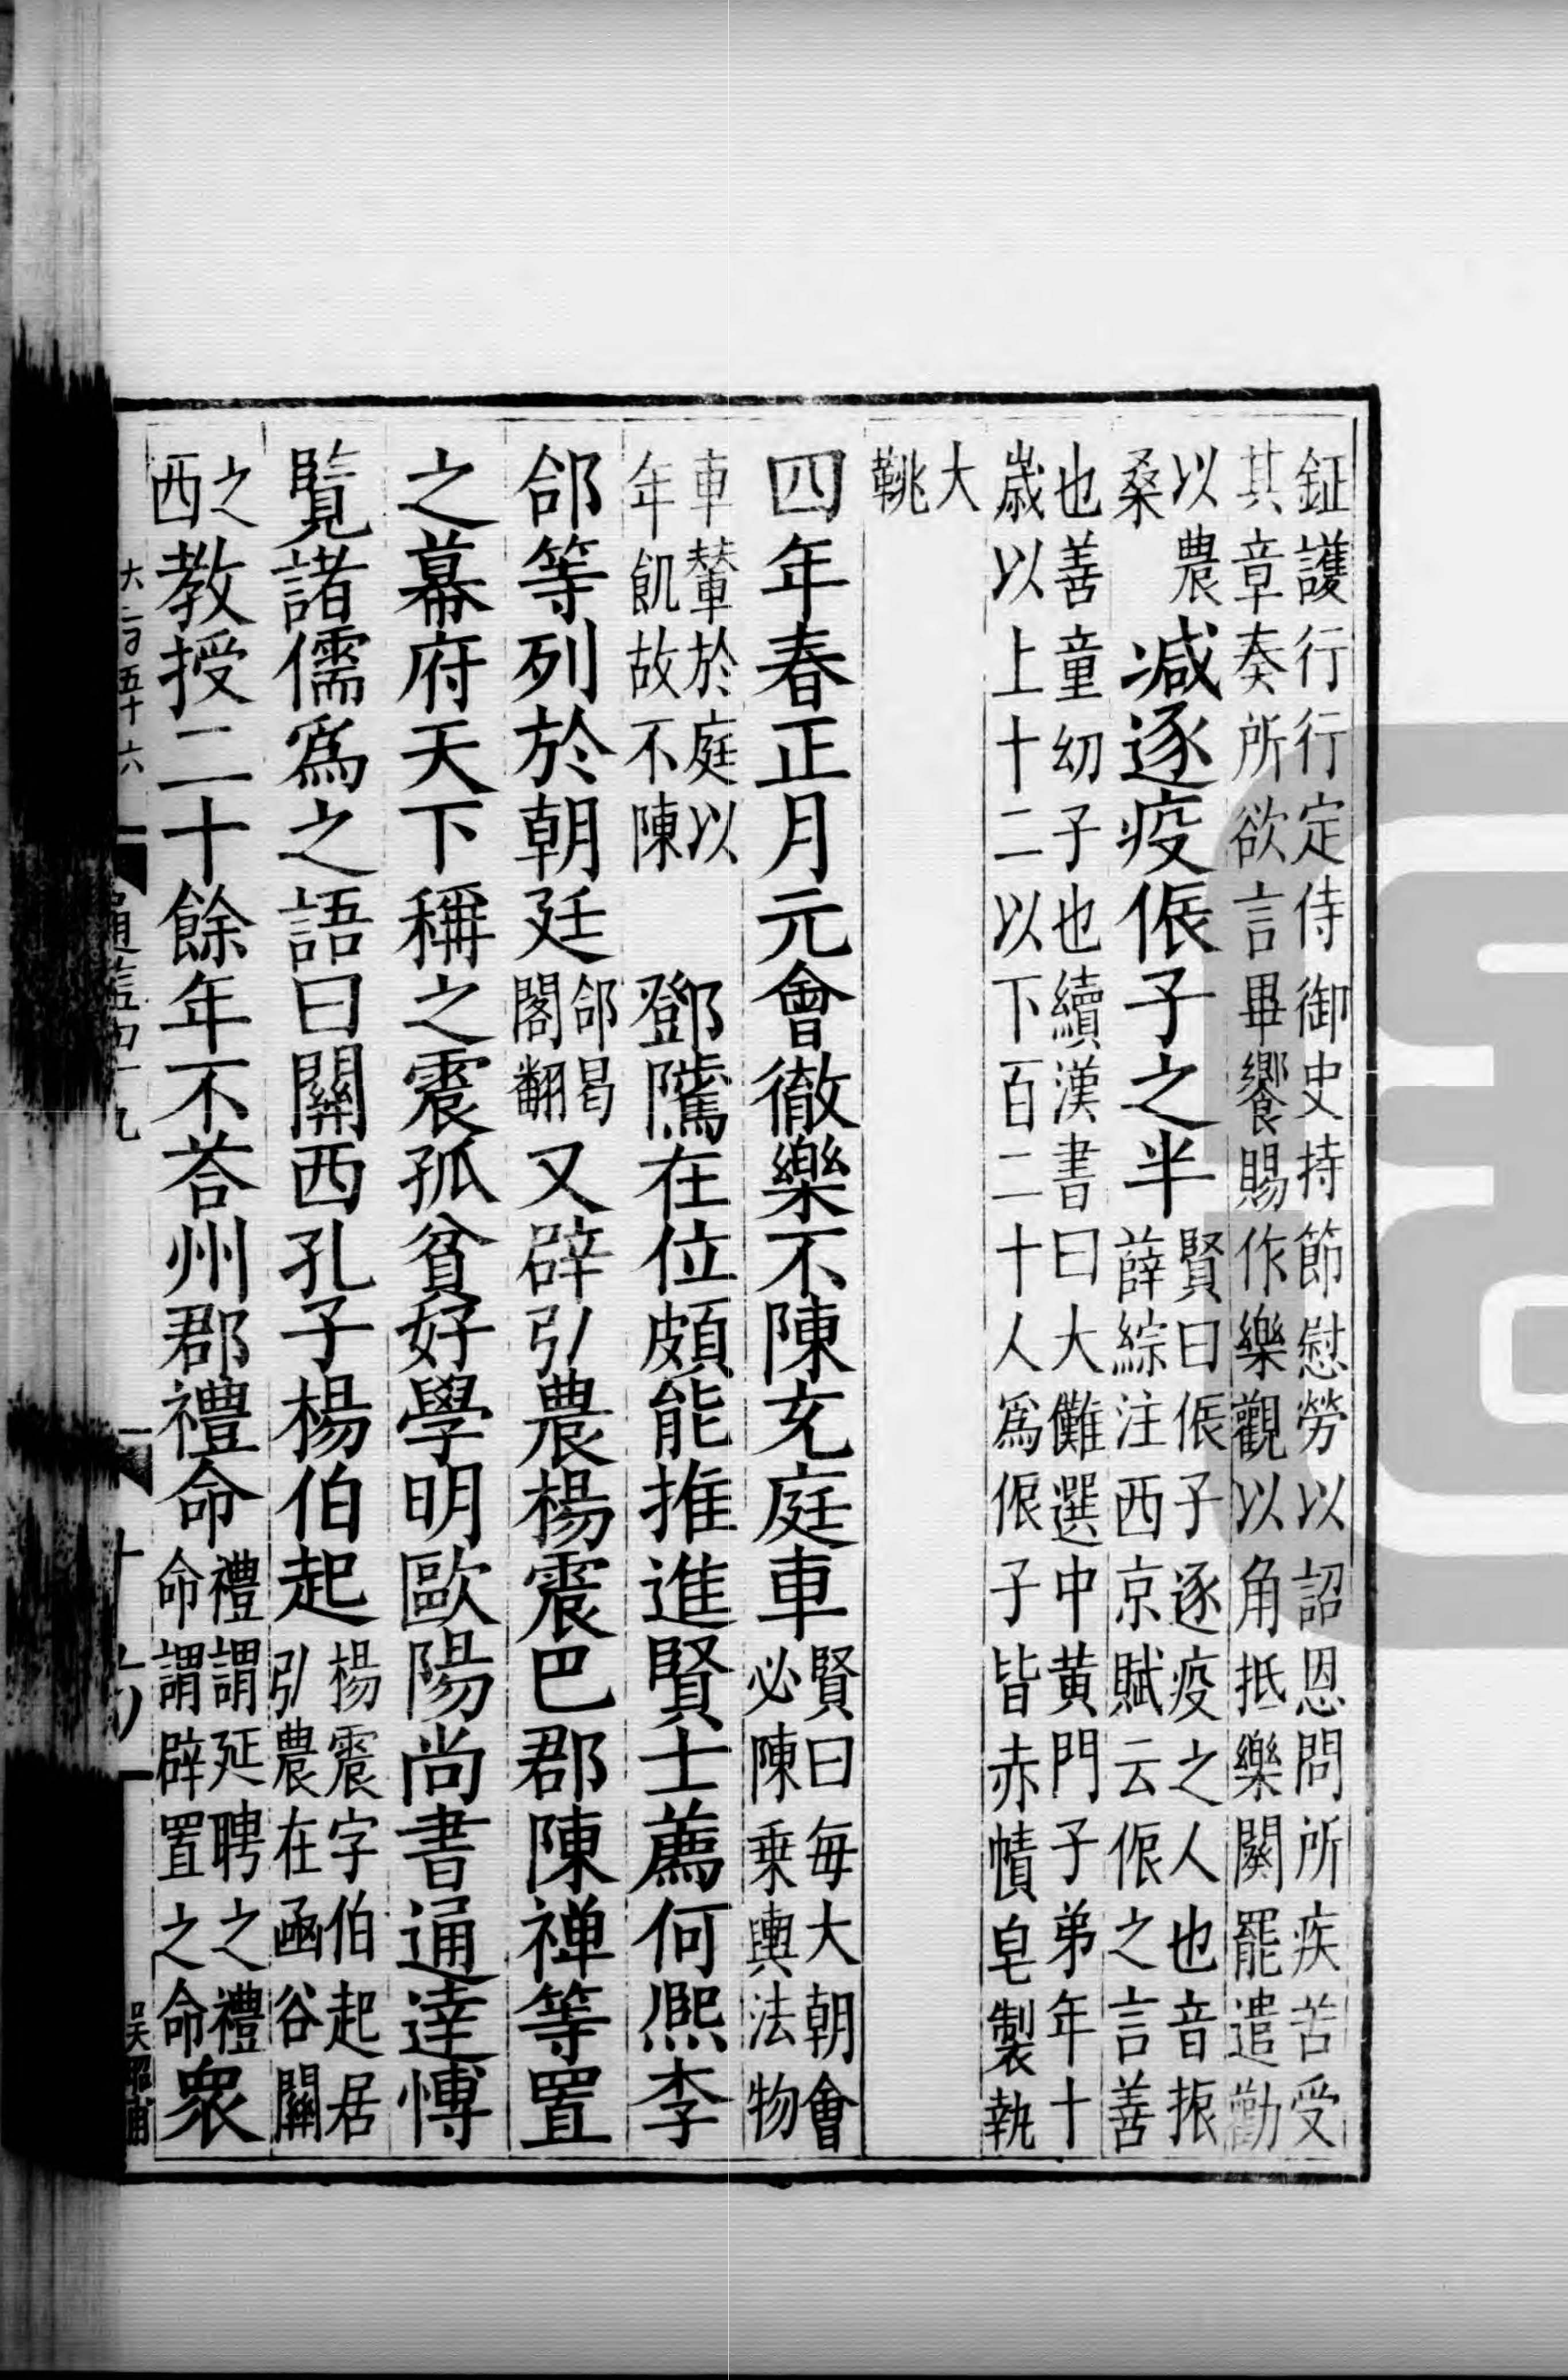 鉦護行行定侍御史持節慰勞以詔恩問所疾苦受
其章奏所欲言畢饗賜作樂觀以角抵樂闋罷遣勸
以農
桑
減逐疫侲子之半
賢曰侲子逐疫之人也音振
薛綜注西京賦云侲之言善
也善童幼子也續漢書曰大儺選中黄門子弟年十
歲以上十二以下百二十人爲侲子皆赤幘皂製執
大
鞉
四年春正月元會徹樂不陳充庭車
賢曰每大朝會
必陳乗輿法物
車輦於庭以
年飢故不陳
鄧隲在位頗能推進賢士薦何熈李
郃等列於朝廷
郃曷
閤翻
又辟弘農楊震巴郡陳禅等置
之幕府天下稱之震孤貧好學明歐陽尚書通達愽
覽諸儒爲之語曰關西孔子楊伯起
楊震字伯起居
弘農在函谷關
之
西
教授二十餘年不荅州郡禮命
禮謂延聘之禮
命謂辟置之命
衆